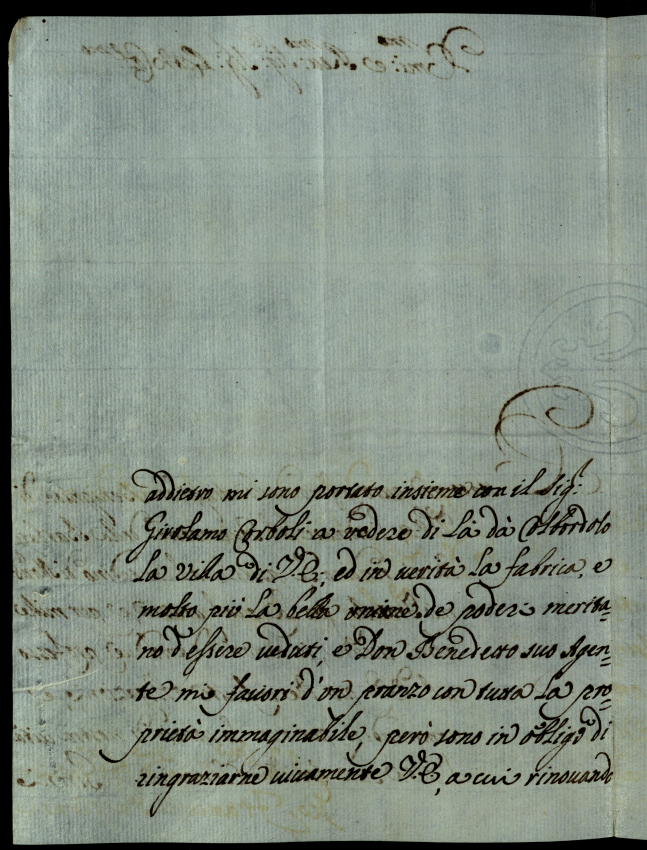 addietro mi sono portato insieme con il Sig.r
Girolamo Corboli a vedere di là dà Colbordolo
la villa di V.E., ed in verità la fabrica, e
molto più la bella unione de poderi merita=
no d'essere veduti, e Don Benedetto suo Agen=
te mi favorì d'un pranzo con tutta la pro=
prietà immaginabile, però sono in obligo di
ringraziarne vivamente V.E., a cui rinovando